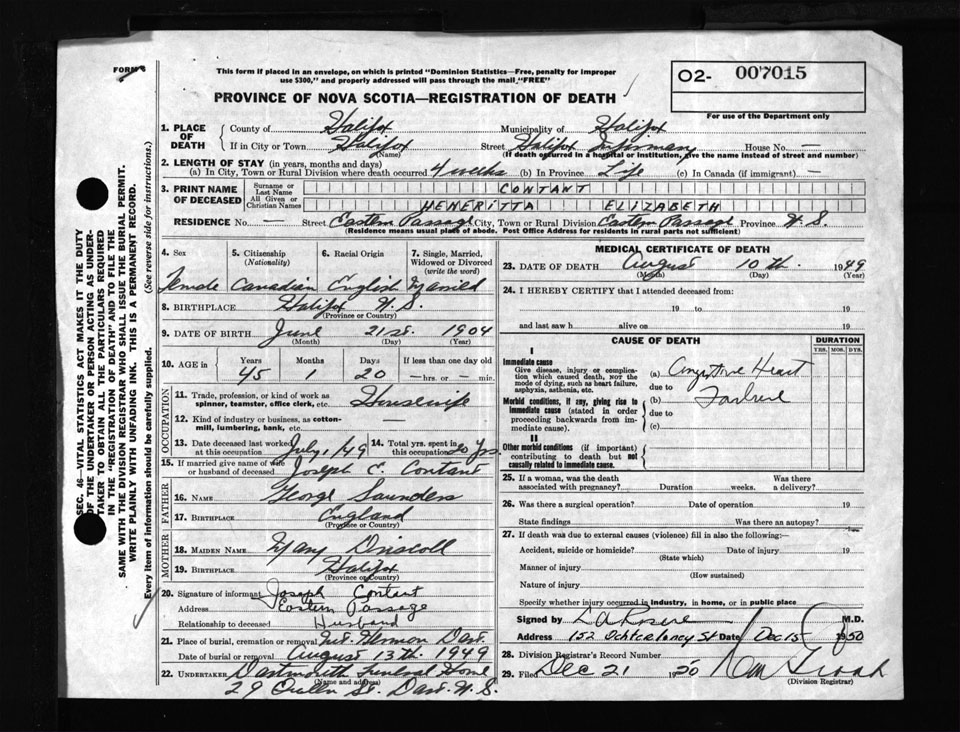 FORM 6
This form if placed in an envelope, on which is printed "Dominion Statistics—Free, penalty for improper
use $300," and properly addressed will pass through the mail "FREE"
PROVINCE OF NOVA SCOTIA—REGISTRATION OF DEATH
O2- 007015
For use of the Department only
SEC. 46—VITAL STATISTICS ACT MAKES IT THE DUTY
OF THE UNDERTAKER OR PERSON ACTING AS UNDER-
TAKER TO OBTAIN ALL THE PARTICULARS REQUIRED
IN THE "REGISTRATION OF DEATH" AND TO FILE THE
SAME WITH THE DIVISION REGISTRAR WHO SHALL ISSUE THE BURIAL PERMIT.
WRITE PLAINLY WITH UNFADING INK. THIS IS A PERMANENT RECORD.
Every item of information should be carefully supplied. (See reverse side for instructions.)
1. PLACE OF DEATH
County of Halifax Municipality of Halifax
If in City or Town Halifax Street Halifax Infirmary House No. —
(Name) (If death occurred in a hospital or institution, give the name instead of street and number)
2. LENGTH OF STAY (in years, months and days)
(a) In City, Town or Rural Division where death occurred 4 weeks (b) In Province Life (c) In Canada (if immigrant) —
3. PRINT NAME OF DECEASED
Surname or Last Name CONTANT
All Given or Christian Names HENERITTA ELIZABETH
RESIDENCE No. — Street Eastern Passage City, Town or Rural Division Eastern Passage Province N.S.
(Residence means usual place of abode. Post Office Address for residents in rural parts not sufficient)
4. Sex 5. Citizenship (Nationality) 6. Racial Origin 7. Single, Married, Widowed or Divorced (write the word)
Female Canadian English Married
8. BIRTHPLACE Halifax N.S.
(Province or Country)
9. DATE OF BIRTH June 21st. 1904
(Month) (Day) (Year)
10. AGE in Years Months Days If less than one day old
45 1 20 — hrs. or — min.
OCCUPATION
11. Trade, profession, or kind of work as
spinner, teamster, office clerk, etc. Housewife
12. Kind of industry or business, as cotton-
mill, lumbering, bank, etc. —
13. Date deceased last worked at this occupation July 1/49 14. Total yrs. spent in this occupation 20 Yrs.
15. If married give name of wife
or husband of deceased Joseph C. Contant
FATHER
16. NAME George Saunders
17. BIRTHPLACE England
(Province or Country)
MOTHER
18. MAIDEN NAME Mary Driscoll
19. BIRTHPLACE Halifax
(Province or Country)
20. Signature of informant Joseph Contant
Address Eastern Passage
Relationship to deceased Husband
21. Place of burial, cremation or removal Mt. Hermon Dart.
Date of burial or removal August 13th. 1949
22. UNDERTAKER Dartmouth Funeral Home
(Name and address)
29 Queen St. Dart. N.S.
MEDICAL CERTIFICATE OF DEATH
23. DATE OF DEATH August 10th. 1949
(Month) (Day) (Year)
24. I HEREBY CERTIFY that I attended deceased from:
19 to 19
and last saw h alive on 19
CAUSE OF DEATH DURATION
YRS. MOS. DYS.
I
Immediate cause
Give disease, injury or complica-
tion which caused death, NOT the
mode of dying, such as heart failure,
asphyxia, asthenia, etc.
(a) Congestive Heart
due to
Morbid conditions, if any, giving rise to
immediate cause (stated in order
proceeding backwards from im-
mediate cause).
(b) Failure
due to
(c)
II
Other morbid conditions (if important)
contributing to death but not
causally related to immediate cause.
25. If a woman, was the death
associated with pregnancy? Duration weeks. Was there a delivery?
26. Was there a surgical operation? Date of operation 19
State findings Was there an autopsy?
27. If death was due to external causes (violence) fill in also the following:—
Accident, suicide or homicide? Date of injury 19
(State which)
Manner of injury
(How sustained)
Nature of injury
Specify whether injury occurred in industry, in home, or in public place
Signed by M.D.
Address 152 St Date Dec 15 1950
28. Division Registrar's Record Number
29. Filed Dec 21 1950
(Division Registrar)